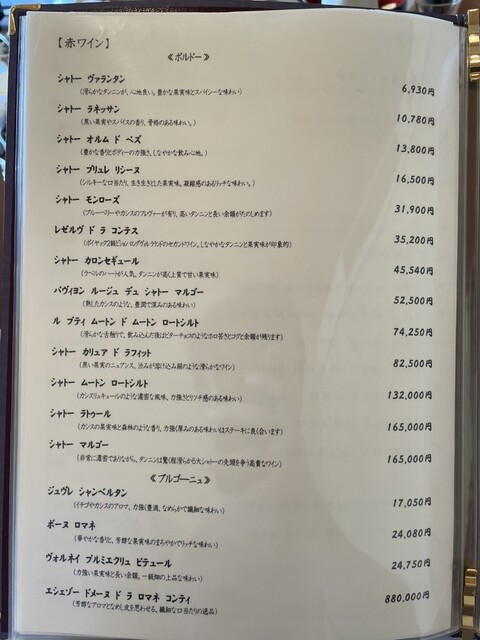 【赤ワイン】
《ボルドー》
シャトー ヴァランタン 6,930円
(滑らかなタンニンが、心地良い。豊かな果実味とスパイシーな味わい)
シャトー ラネッサン 10,780円
(黒い果実やスパイスの香り、骨格のある味わい。)
シャトー オルム ド ペズ 13,800円
(豊かな香りとボディーの力強さ、しなやかな飲み心地。)
シャトー プリュレ リシーヌ 16,500円
(シルキーな口当たり、生き生きとした果実味。凝縮感のあるリッチな味わい。)
シャトー モンローズ 31,900円
(ブルーベリーやカシスのフレヴァーが有り、高いタンニンと長い余韻がたのしめます)
レゼルヴ ド ラ コンテス 35,200円
(ポイヤック2級ピション ロングヴィル ラランドのセカンドワイン。しなやかなタンニンと果実味が印象的)
シャトー カロンセギュール 45,540円
(ラベルのハートが人気。タンニンが高く上質で甘い果実味)
パヴィヨン ルージュ デュ シャトー マルゴー 52,500円
(熟したカシスのような、豊潤で深みのある味わい)
ル プティ ムートン ド ムートン ロートシルト 74,250円
(滑らかな舌触りで、飲み込んだ後はビターチョコのようなホロ苦さとコクと余韻が残ります)
シャトー カリュア ド ラフィット 82,500円
(黒い果実のニュアンス、渋みが溶け込み絹のような滑らかなワイン)
シャトー ムートン ロートシルト 132,000円
(カシスリキュールのような濃密な風味、力強さとリッチ感のある味わい)
シャトー ラトゥール 165,000円
(カシスの果実味と森林のような香り、力強く厚みのある味わいはステーキに良く合います)
シャトー マルゴー 165,000円
(非常に濃密でありながら、タンニンは驚く程滑らか五大シャトーの先頭を争う高貴なワイン)
《ブルゴーニュ》
ジュヴレ シャンベルタン 17,050円
(イチゴやカシスのアロマ、力強く豊満、なめらかで繊細な味わい)
ボーヌ ロマネ 24,080円
(華やかな香りと、芳醇な果実味のまろやかでリッチな味わい)
ヴォルネイ プルミエクリュ ピテュール 24,750円
(力強い果実味と長い余韻。一級畑の上品な味わい)
エシェゾー ドメーヌ ド ラ ロマネ コンティ 880,000円
(芳醇なアロマとなめし皮を思わせる、繊細な口当たりの逸品)